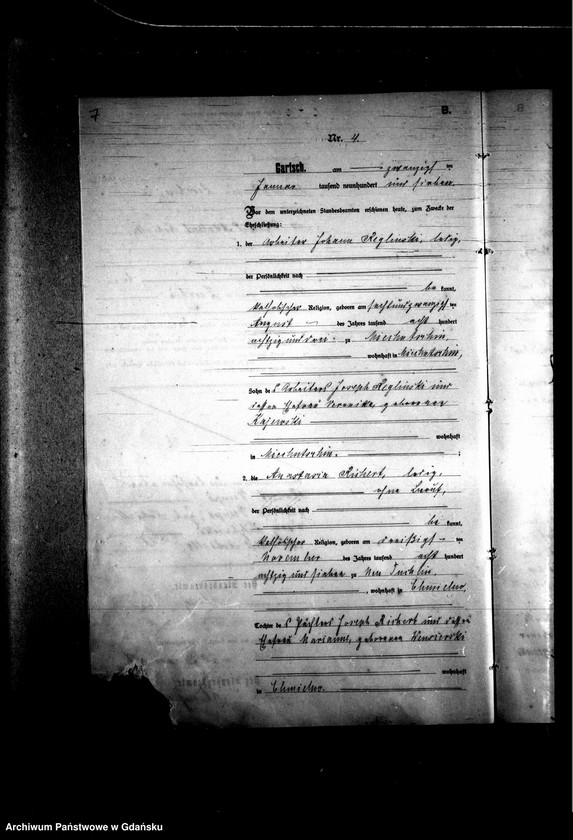 7
B.
Nr. 4.
Gartsch, am zwanzigsten
Januar tausend neunhundert und sieben
Vor dem unterzeichneten Standesbeamten erschienen heute, zum Zwecke der
Eheschließung:
1. der Arbeiter Johann Reglinski, ledig,
der Persönlichkeit nach
be kannt,
katholischer Religion, geboren am sechsundzwanzigsten
August des Jahres tausend acht hundert
achtzig und drei zu
wohnhaft in
Sohn des Arbeiters Joseph Reglinski und
dessen Ehefrau Veronika, geborenen
Kajewski
wohnhaft
in ;
2. die Anastasia Richert, ledig,
ohne Beruf,
der Persönlichkeit nach
be kannt,
katholischer Religion, geboren am dreißigsten
November des Jahres tausend acht hundert
achtzig und sieben zu Neu Tuchlin
, wohnhaft in Chmielno,
Tochter des Pächters Joseph Richert und dessen
Ehefrau Marianne, geborenen
wohnhaft
in Chmielno.
Archiwum Państwowe w Gdańsku